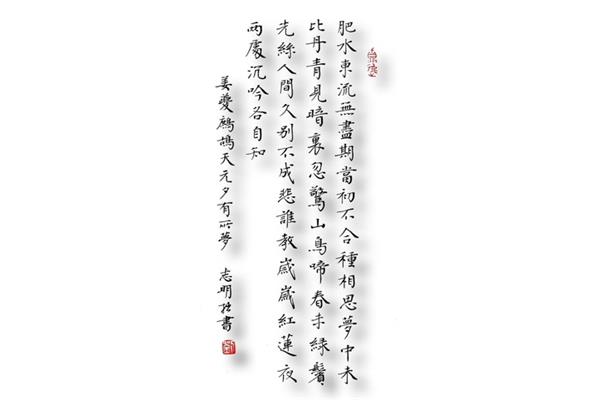 肥水東流無盡期當初不合種相思夢中未
比丹青見暗裏忽驚山鳥啼春未綠鬢
先絲人間久別不成悲誰教歲歲紅蓮夜
兩處沉吟各自知
姜夔鷓鴣天元夕有所夢 志明書